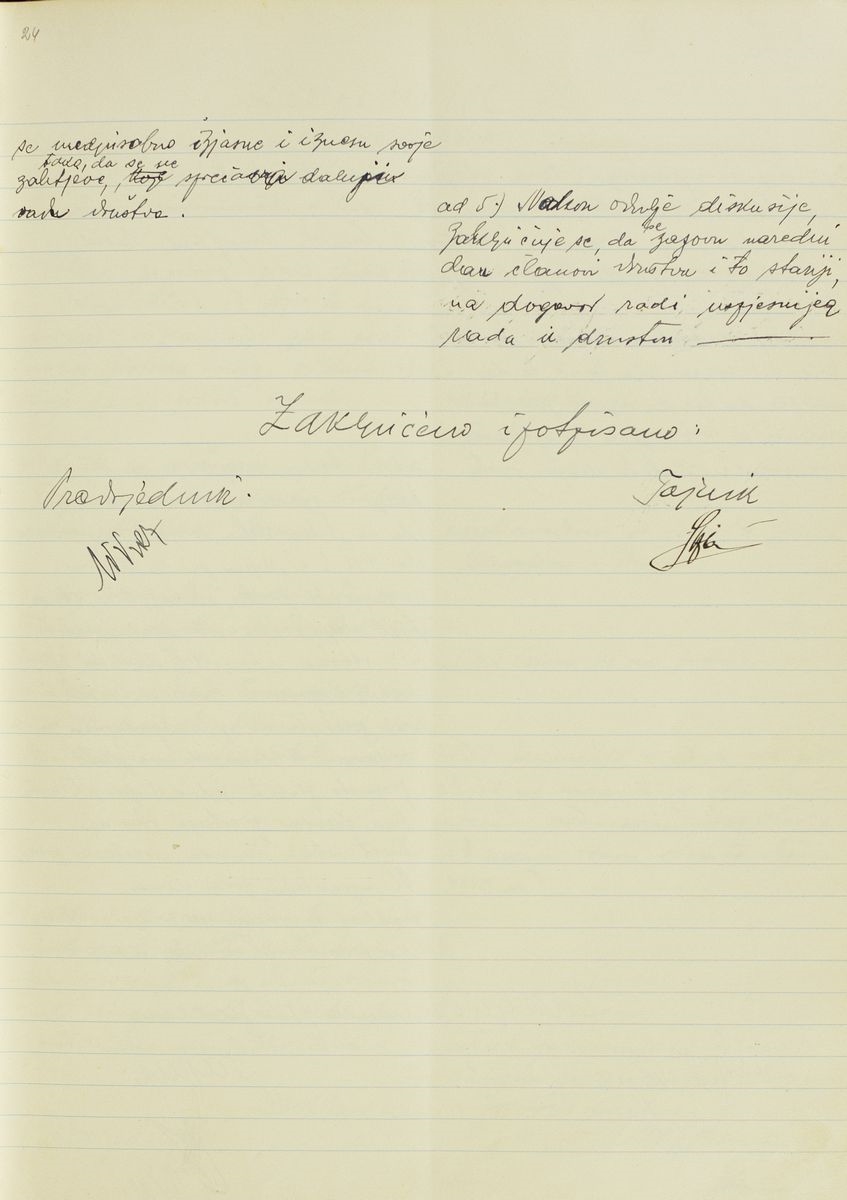 24
se medjusobno izjasne i iznesu svoje
tada, da se ne
zahtjeve, koje sprečava daljnji
rad društva.
ad 5.) Nakon odulje diskusije,
zaključuje se, da se zazovu naredni
dan članovi društva i to stariji,
na dogovor radi uspješnijeg
rada u društvu
Zaključeno i potpisano:
Predsjednik.
Tajnik